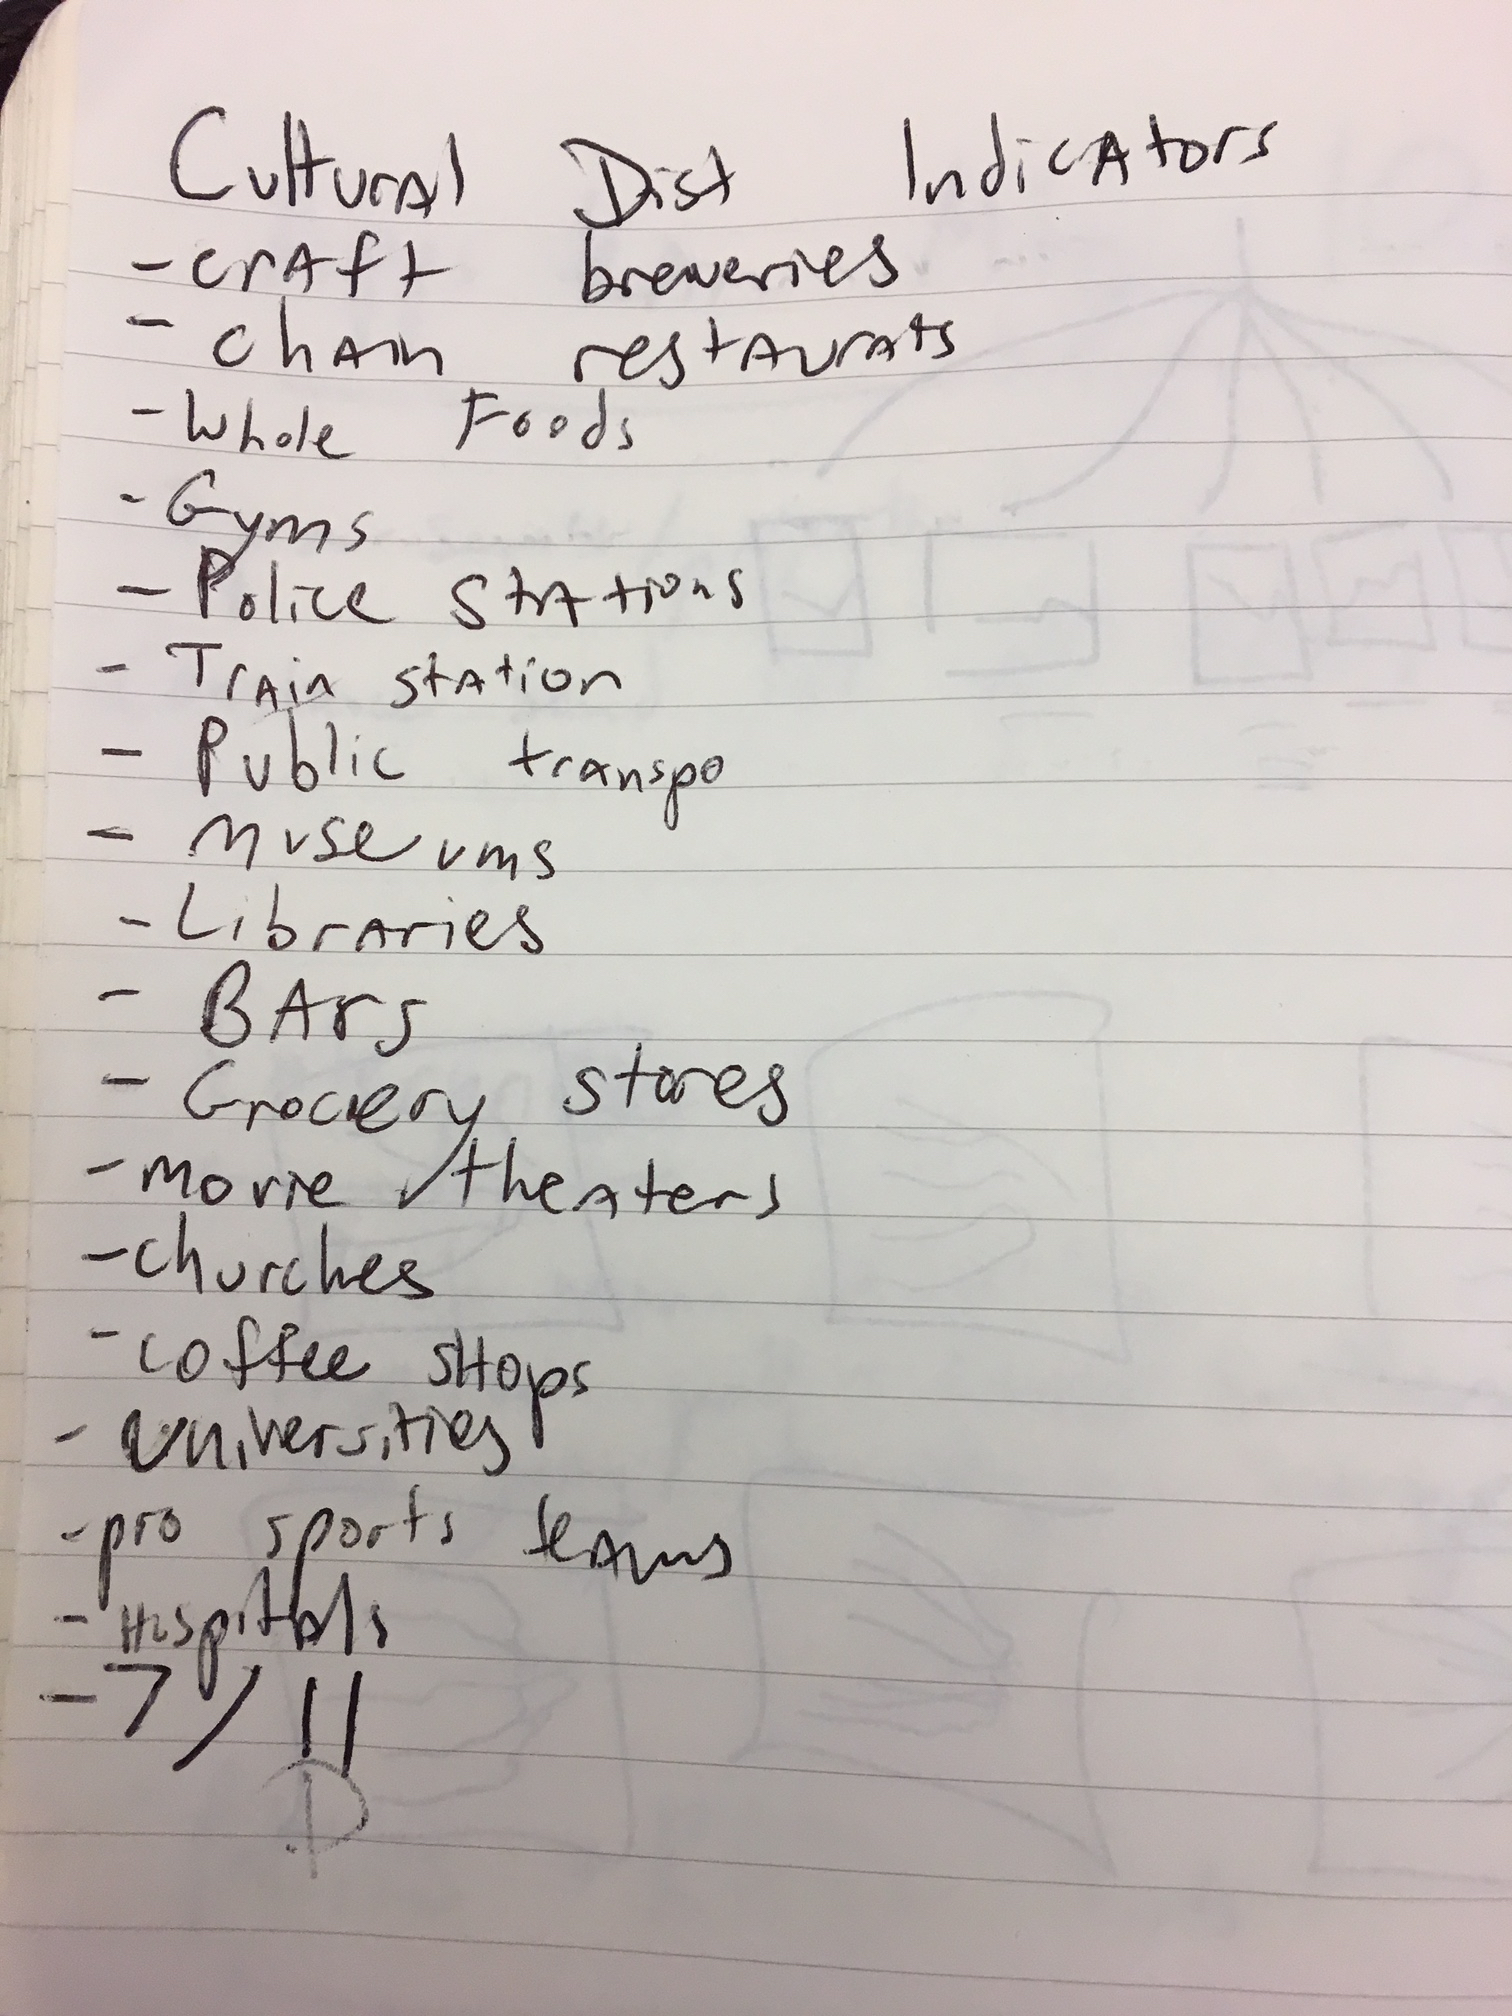 Cultural Dist Indicators
- craft breweries
- chain restaurats
- Whole Foods
- Gyms
- Police stations
- Train station
- Public transpo
- Museums
- Libraries
- BArs
- Grocery stores
- movie theaters
- churches
- coffee sHops
- Universities
- pro sports teams
- Hospitals
- 7/11
D